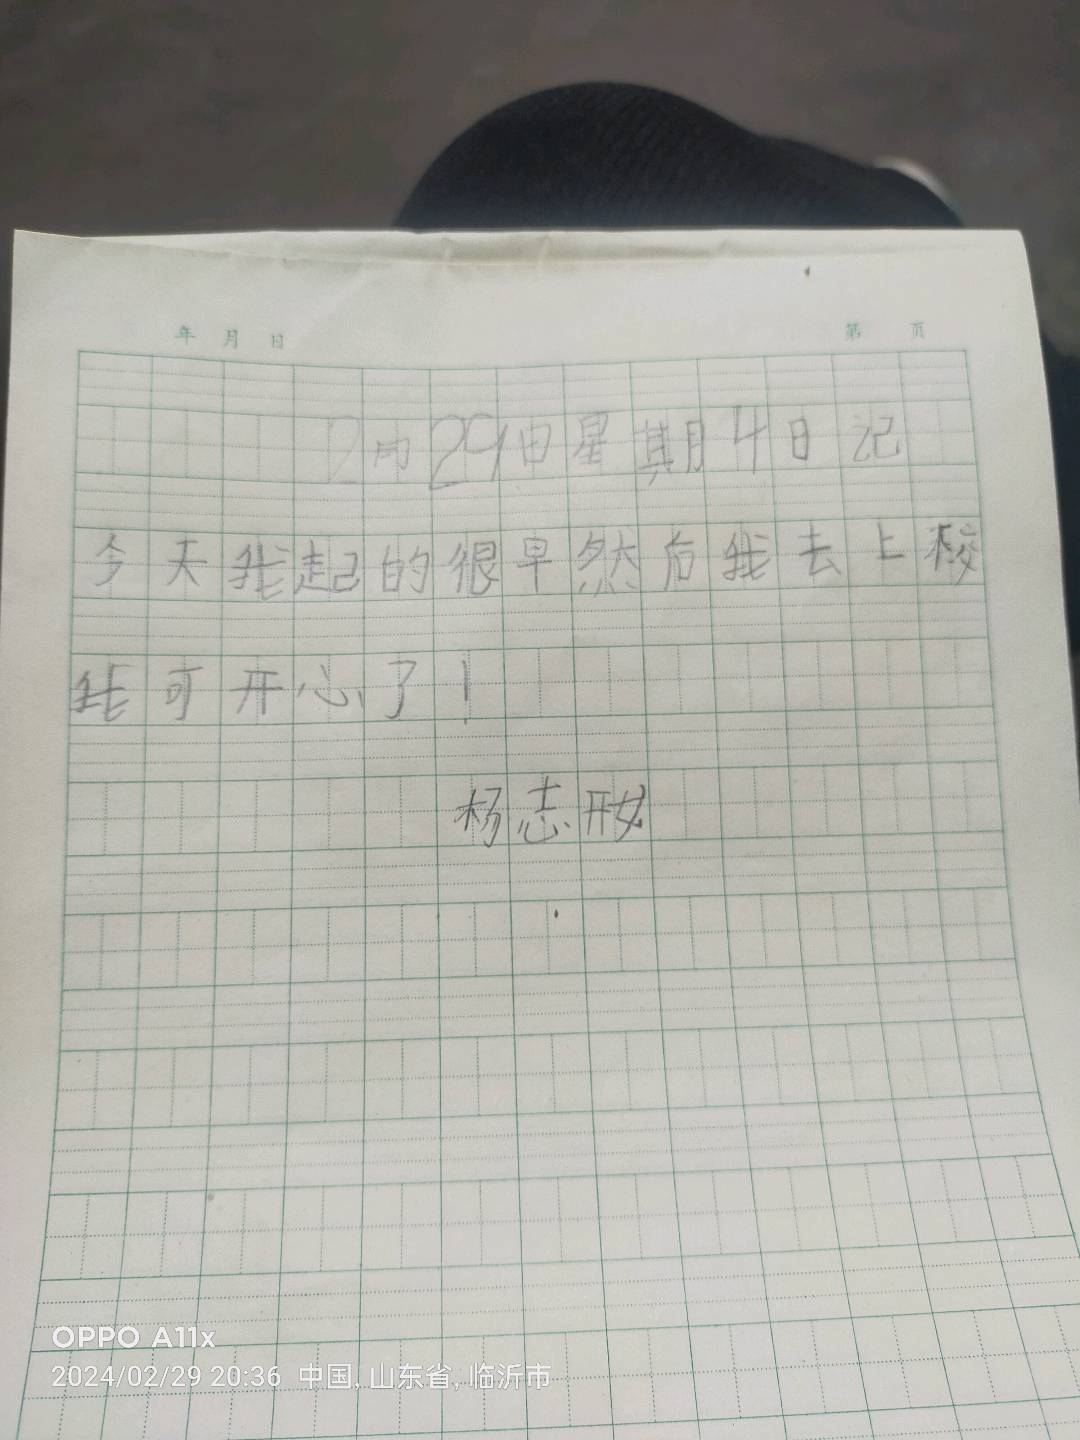 年 月 日 第 页
2月29日星期4日记
今天我起的很早然后我去上校
我可开心了!
杨志妍
OPPO A11x
2024/02/29 20:36 中国,山东省,临沂市